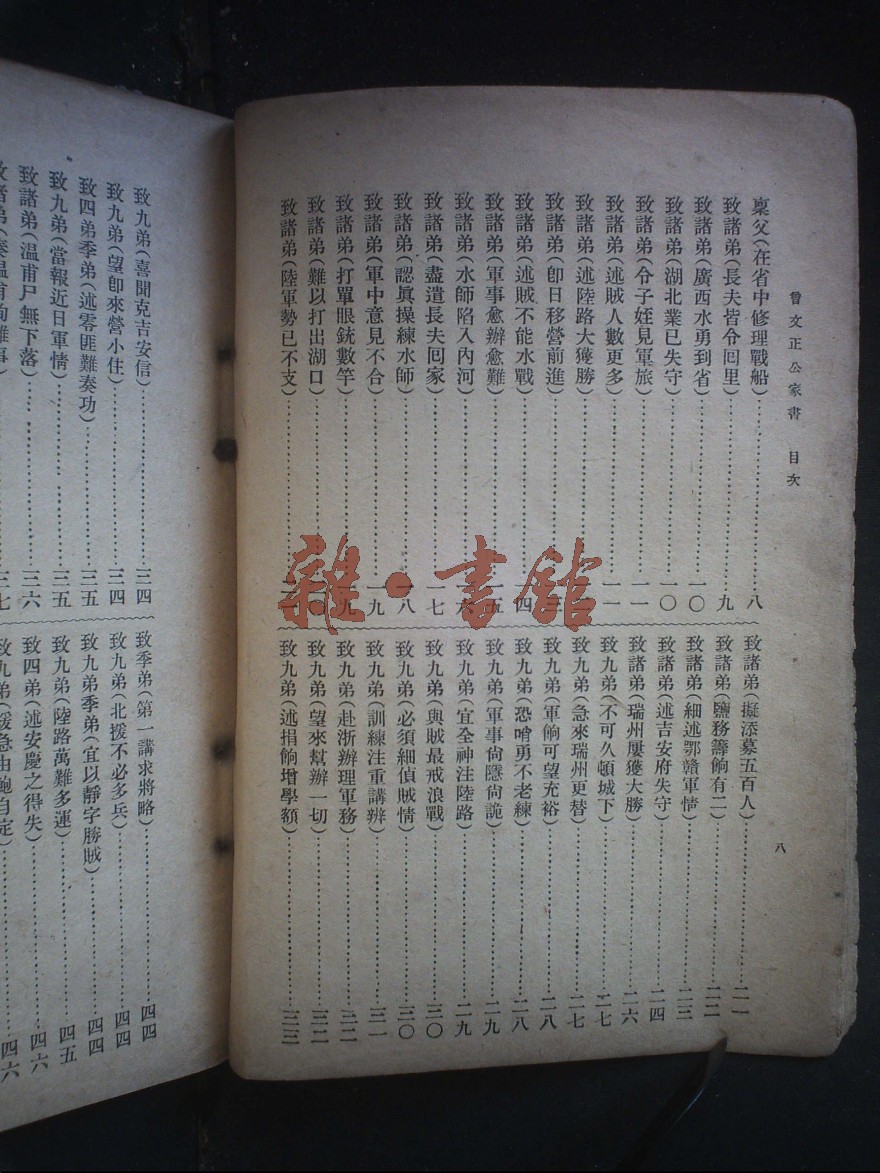 曾文正公家書　目次
稟父(在省中修理戰船)……八
致諸弟(長夫皆令囘里)……九
致諸弟(廣西水勇到省)……一〇
致諸弟(湖北業已失守)……一〇
致諸弟(令子姪見軍旅)……一一
致諸弟(述賊人數更多)……一一
致諸弟(述陸路大獲勝)……
致諸弟(卽日移營前進)……
致諸弟(述賊不能水戰)……
致諸弟(軍事愈辦愈難)……一五
致諸弟(水師陷入內河)……一六
致諸弟(盡遣長夫囘家)……一七
致諸弟(認眞操練水師)……一八
致諸弟(軍中意見不合)……一九
致諸弟(打單眼銃數竿)……一九
致諸弟(難以打出湖口)……
致諸弟(陸軍勢已不支)……
致諸弟(擬添募五百人)……二一
致諸弟(鹽務籌餉有二)……二二
致諸弟(細述鄂贛軍情)……二三
致諸弟(述吉安府失守)……二四
致諸弟(瑞州屢獲大勝)……二六
致九弟(不可久頓城下)……二七
致九弟(急來瑞州更替)……二七
致九弟(軍餉可望充裕)……二八
致九弟(恐噲勇不老練)……二八
致九弟(軍事尙隱尙詭)……二九
致九弟(宜全神注陸路)……二九
致九弟(與賊最戒浪戰)……三〇
致九弟(必須細偵賊情)……三〇
致九弟(訓練注重講辨)……三一
致九弟(赴浙辦理軍務)……三二
致九弟(望來幫辦一切)……三二
致九弟(述捐餉增學額)……三三
八
致九弟(喜聞克吉安信)……三四
致九弟(望卽來營小住)……三四
致四弟季弟(述零匪難奏功)……三五
致九弟(當報近日軍情)……三五
致諸弟(溫甫尸無下落)……三六
致諸弟(溫甫殉難事)……三七
致季弟(第一講求將略)……四四
致九弟(北援不必多兵)……四四
致九弟季弟(宜以靜字勝賊)……四四
致九弟(陸路萬難多運)……四五
致四弟(述安慶之得失)……四六
致九弟(緩急由鮑自定)……四六
雜·書館